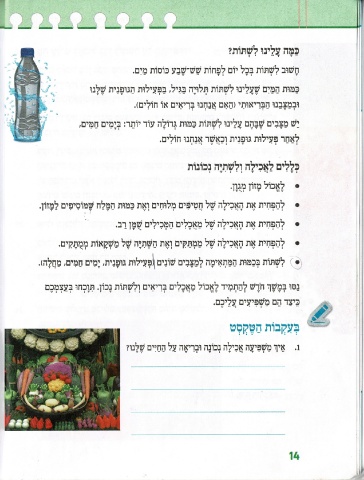 כַּמָּה עָלֵינוּ לִשְׁתּוֹת?
חָשׁוּב לִשְׁתּוֹת בְּכָל יוֹם לְפָחוֹת שֵׁשׁ־שֶׁבַע כּוֹסוֹת מַיִם.
כַּמּוּת הַמַּיִם שֶׁעָלֵינוּ לִשְׁתּוֹת תְּלוּיָה בַּגִּיל, בַּפְּעִילוּת הַגּוּפָנִית שֶׁלָּנוּ
וּבְמַצָּבֵנוּ הַבְּרִיאוּתִי (הַאִם אֲנַחְנוּ בְּרִיאִים אוֹ חוֹלִים).
יֵשׁ מַצָּבִים שֶׁבָּהֶם עָלֵינוּ לִשְׁתּוֹת כַּמּוּת גְּדוֹלָה עוֹד יוֹתֵר: בְּיָמִים חַמִּים,
לְאַחַר פְּעִילוּת גּוּפָנִית וְכַאֲשֶׁר אֲנַחְנוּ חוֹלִים.
כְּלָלִים לַאֲכִילָה וְלִשְׁתִיָּה נְכוֹנוֹת
• לֶאֱכוֹל מָזוֹן מְגֻוָּן.
• לְהַפְחִית אֶת הָאֲכִילָה שֶׁל חֲטִיפִים מְלוּחִים וְאֶת כַּמּוּת הַמֶּלַח שֶׁמּוֹסִיפִים לַמָּזוֹן.
• לְהַפְחִית אֶת הָאֲכִילָה שֶׁל מַאֲכָלִים הַמְּכִילִים שֻׁמָּן רַב.
• לְהַפְחִית אֶת הָאֲכִילָה שֶׁל מַמְתַּקִּים וְאֶת הַשְּׁתִיָּה שֶׁל מַשְׁקָאוֹת מְמֻתָּקִים.
• לִשְׁתּוֹת בְּכַמּוּת הַמַּתְאִימָה לְמַצָּבִים שׁוֹנִים (פְּעִילוּת גּוּפָנִית, יָמִים חַמִּים, מַחֲלָה).
נַסּוּ בְּמֶשֶׁךְ חֹדֶשׁ לְהַתְמִיד לֶאֱכוֹל מַאֲכָלִים בְּרִיאִים וְלִשְׁתּוֹת נָכוֹן. תִּוָּכְחוּ בְּעַצְמְכֶם
כֵּיצַד הֵם מַשְׁפִּיעִים עֲלֵיכֶם.
בְּעִקְבוֹת הַטֶּקְסְט
1. אֵיךְ מַשְׁפִּיעָה אֲכִילָה נְכוֹנָה וּבְרִיאָה עַל הַחַיִּים שֶׁלָּנוּ?
14